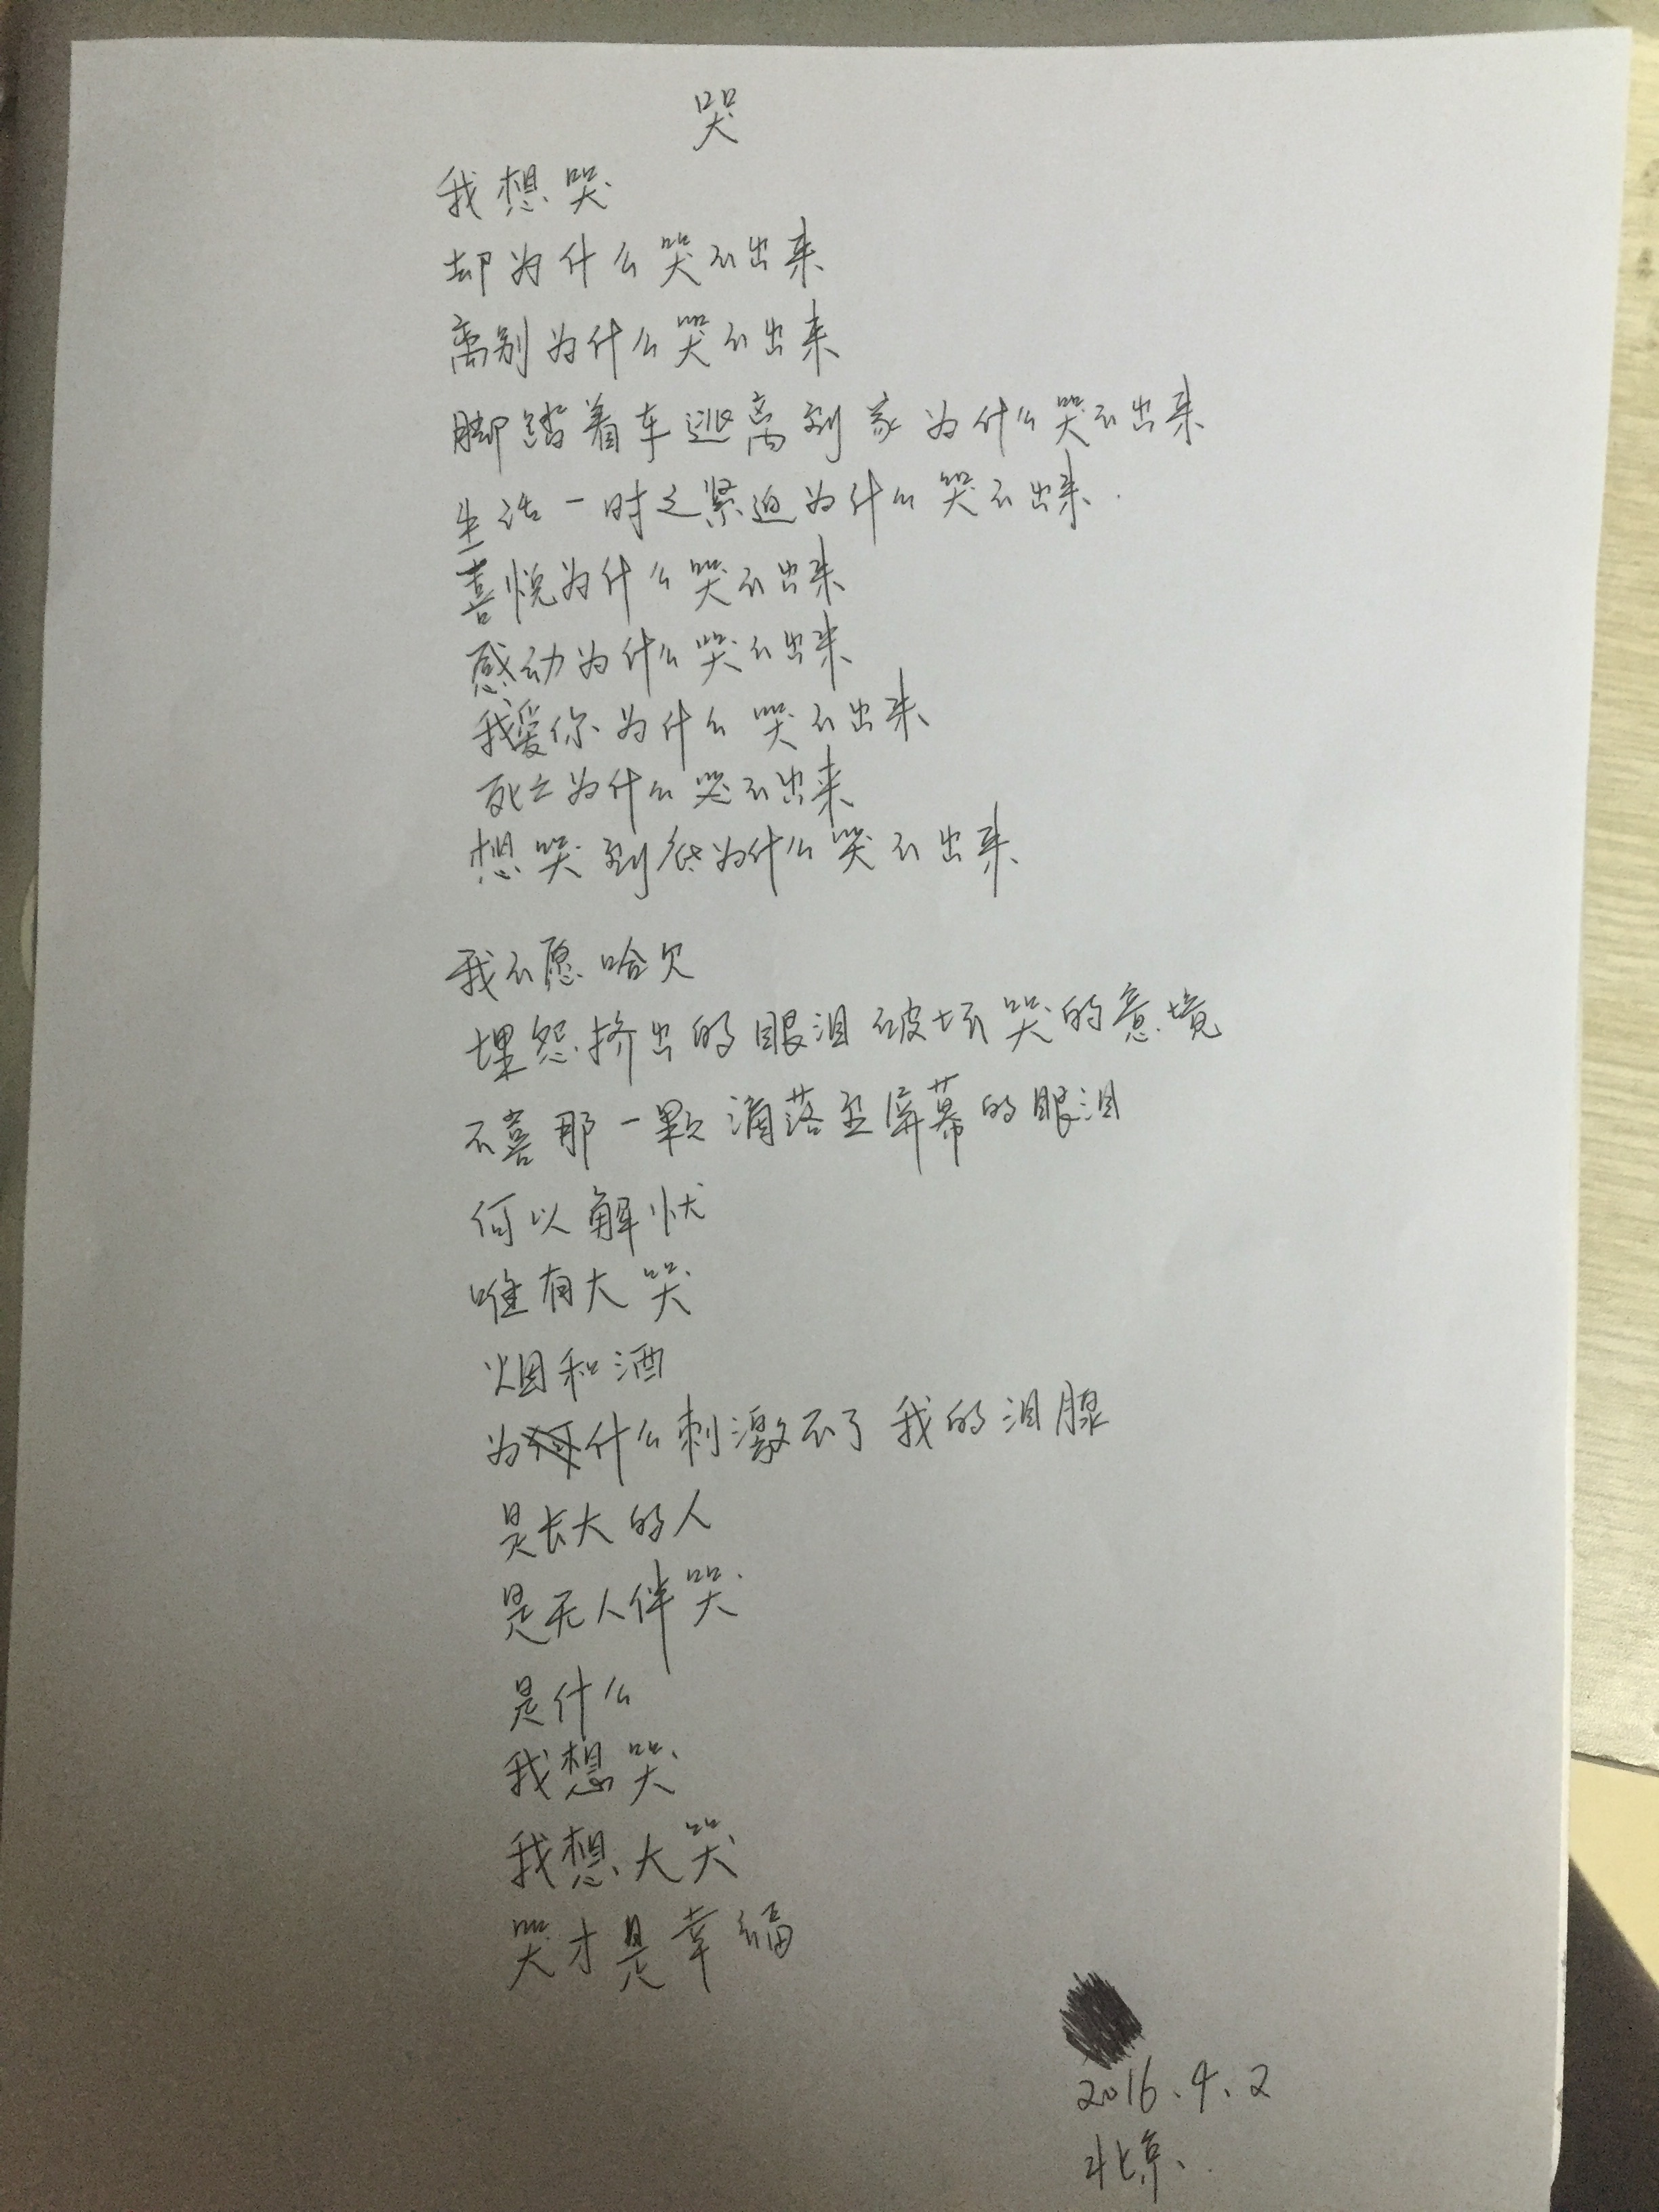 哭
我想哭
却为什么哭不出来
离别为什么哭不出来
脚踏着车逃离到家为什么哭不出来
生活一时之紧迫为什么哭不出来
喜悦为什么哭不出来
感动为什么哭不出来
我爱你为什么哭不出来
死亡为什么哭不出来
想哭到底为什么哭不出来
我不愿哈欠
埋怨挤出的眼泪破坏哭的意境
不喜那一颗滴落至屏幕的眼泪
何以解忧
唯有大哭
烟和酒
为什么刺激不了我的泪腺
是长大的人
是无人伴哭
是什么
我想哭
我想大哭
哭才是幸福
2016.4.2
北京